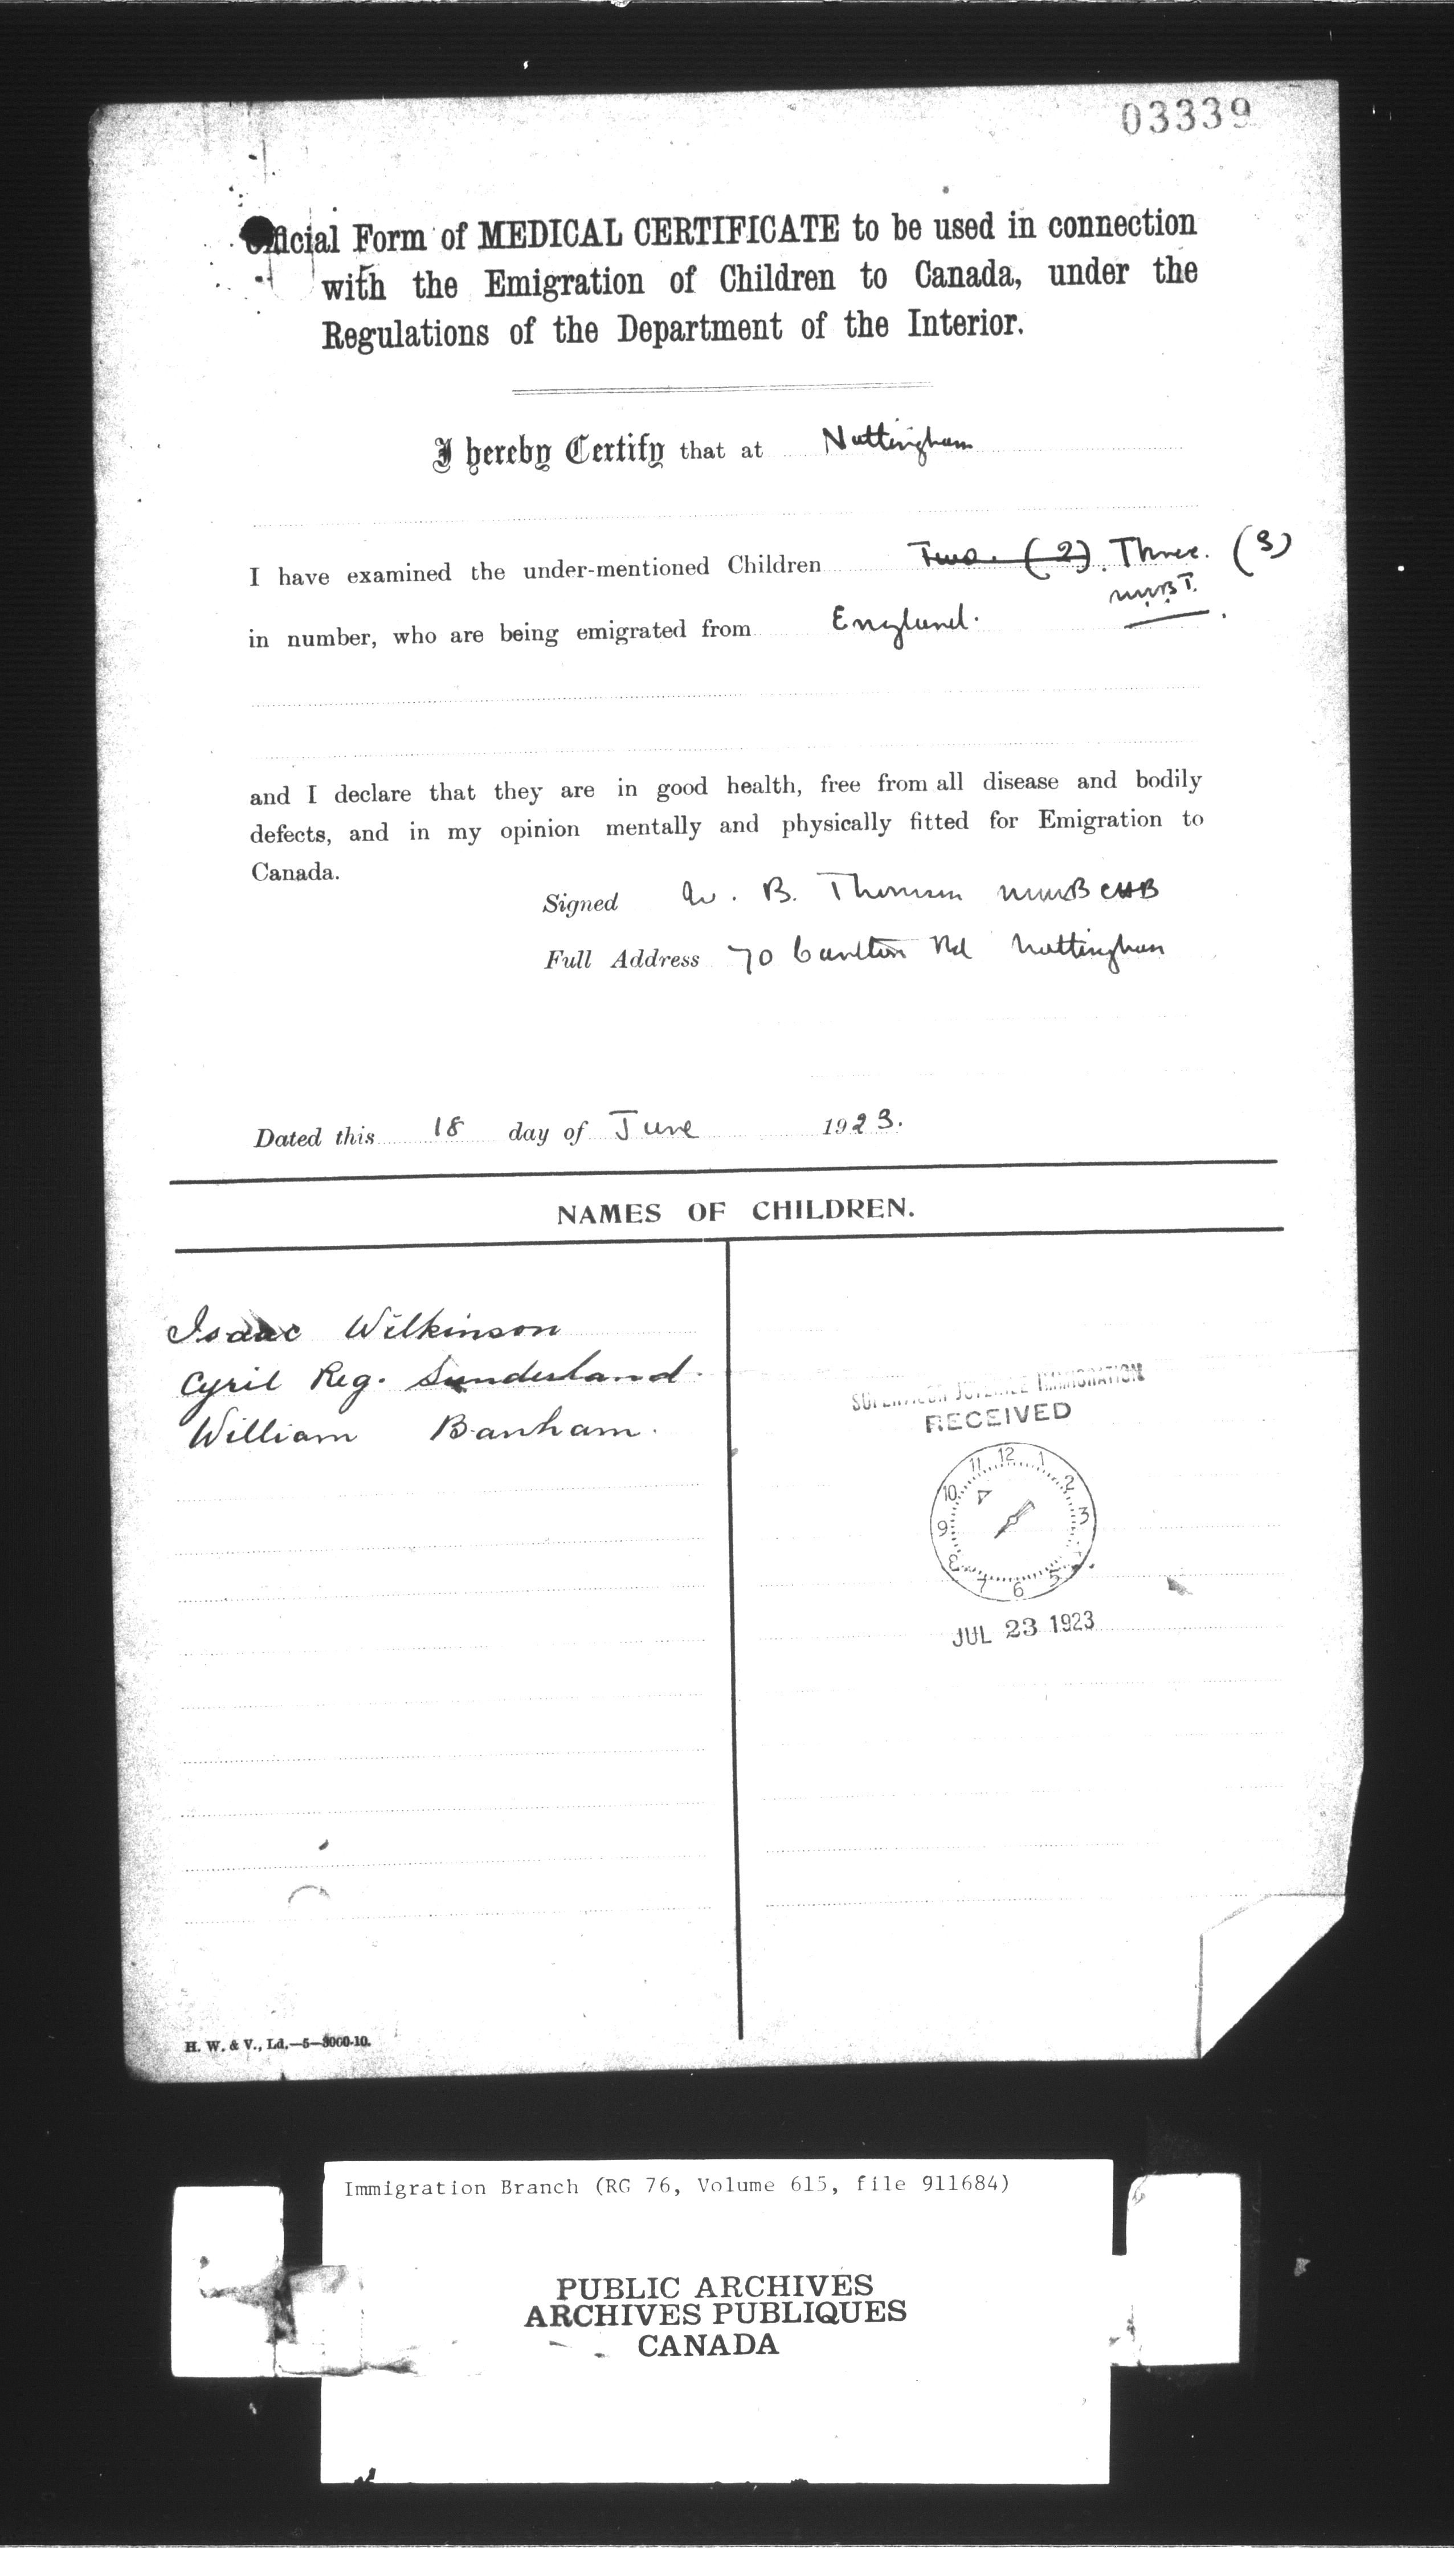 03339
Official Form of MEDICAL CERTIFICATE to be used in connection
with the Emigration of Children to Canada, under the
Regulations of the Department of the Interior.
I hereby Certify that at Nottingham
I have examined the under-mentioned Children Two. (2). Three. (3)
in number, who are being emigrated from England. W.B.T.
and I declare that they are in good health, free from all disease and bodily
defects, and in my opinion mentally and physically fitted for Emigration to
Canada.
Signed W. B. Thomson MB CHB
Full Address 70 Carlton Rd Nottingham
Dated this 18 day of June 1923.
NAMES OF CHILDREN.
Isaac Wilkinson
Cyril Reg. Sunderland.
William Banham.
SUPERVISOR JUVENILE IMMIGRATION
RECEIVED
12 1 2 3 5 6 7 8 9 10 11
JUL 23 1923
H. W. & V., Ld.—5—3000-10.
Immigration Branch (RG 76, Volume 615, file 911684)
PUBLIC ARCHIVES
ARCHIVES PUBLIQUES
CANADA